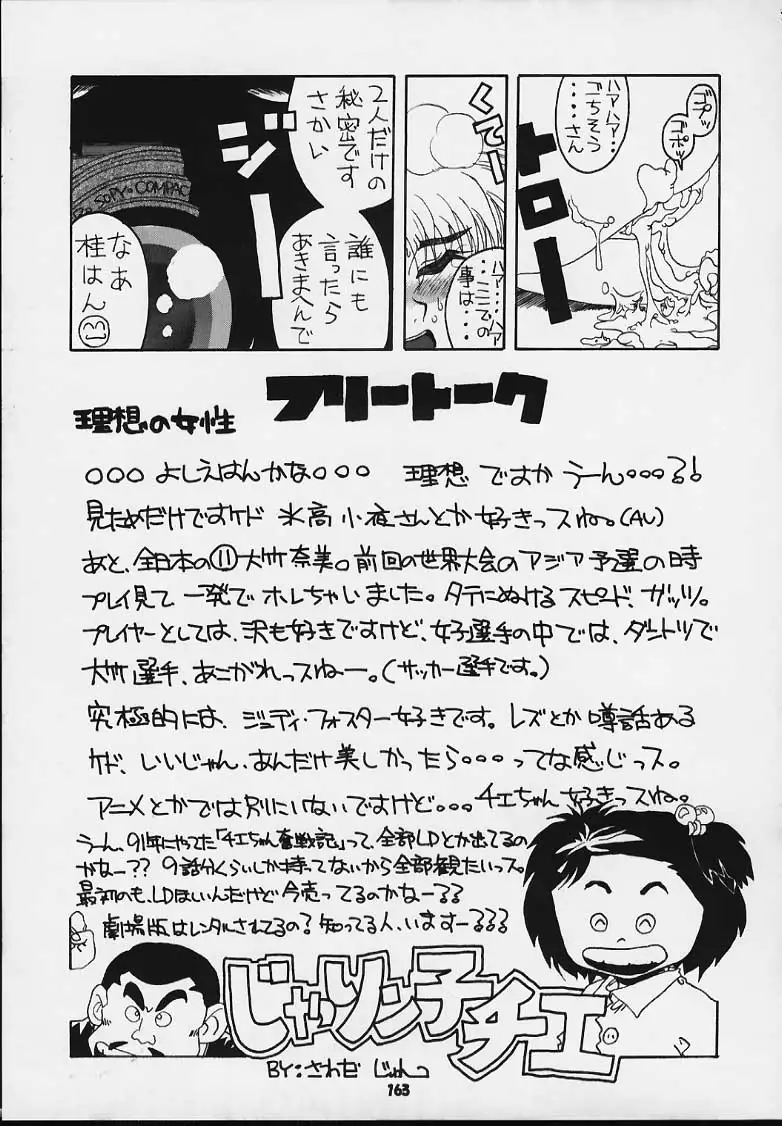 ゴプッ
ゴポッ
ハァハァ・・・
ごちそう
・・・・さん
トロー
くてー
ハァ・・・ハァ
・・ここでの
事は・・・
2人だけの
秘密です
さかい
誰にも
言ったら
あきまへんで
ジー
SOPY・COMPAC
なぁ
桂はん
フリートーク
理想の女性
○○○よしえはんかな○○○ 理想ですか うーん・・・る!
見ためだけですケド 氷高小夜さんとか好きっスね。(AV)
あと、全日本の⑪大竹奈美。前回の世界大会のアジア予選の時
プレイ見て一発でホレちゃいました。タテにぬけるスピード、ガッツ。
プレイヤーとしては、沢も好きですけど、女子選手の中では、ダントツで
大竹選手、あこがれっスねー。(サッカー選手です。)
究極的には、ジュディ・フォスター好きです。レズとか噂話ある
ケド、いいじゃん、あんだけ美しかったら・・・ってな感じっス。
アニメとかでは別にいないですけど・・・チエちゃん好きっスね。
うーん、91年にやってた「チエちゃん奮戦記」って、全部LDとか出てるの
かなー?? 9話分くらいしか持ってないから全部観たいっス。
最初のも、LDほしいんだけど今売ってるのかなーるる
劇場版はレンタルされてるの?知ってる人、いますーるるる
じゃりン子チエ
BY:さわだ じゅんこ
163